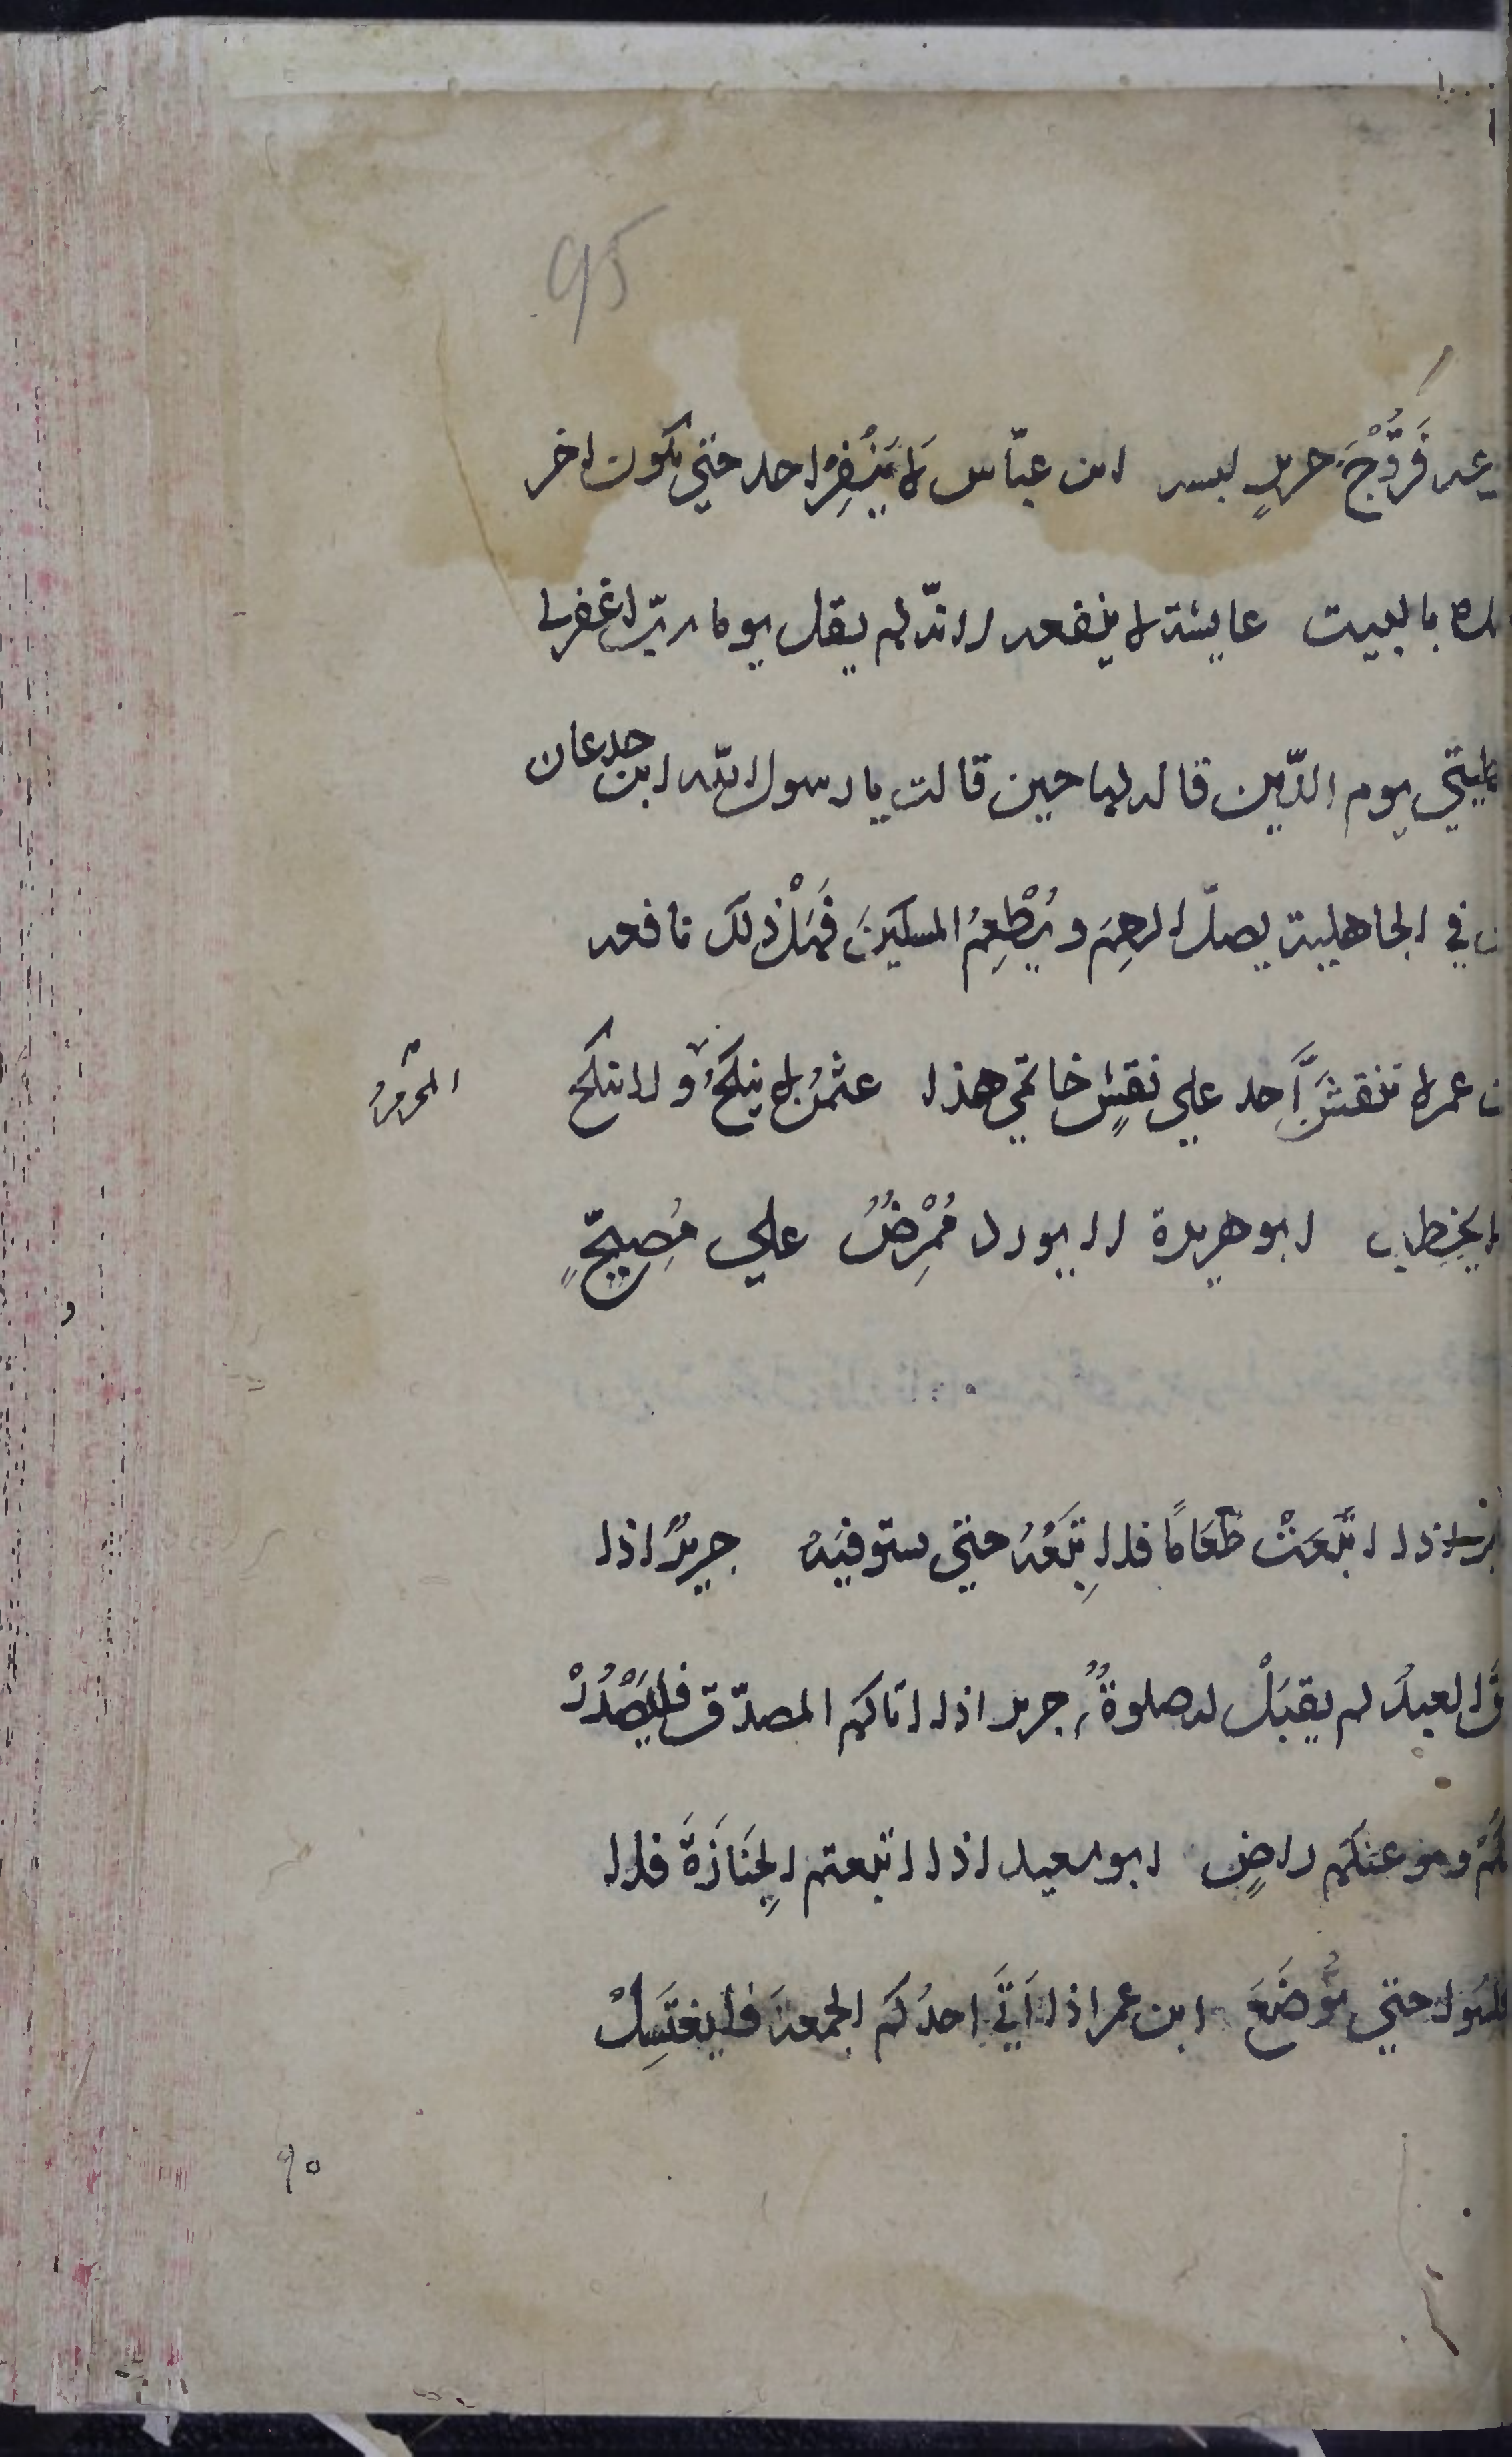 95
فَرُّوْجَ حريرٍ لبسه ابن عبّاس لا يَنْفِرْ احد حتي يكون اخر
بالبيت عايشة لا ينفعه انّه لم يقل يوما ربّ اغفر لي
يوم الدّين قاله لها حين قالت يا رسول الله ابن جدعان
في الجاهلية يصل الرحِمَ ويُطْعِمُ المسكينَ فَهَلْ ذلك نافعه
عمر لا تنقشَ اَحد علي نقشِ خاتمي هذا عثمن لا يَنكحُ ولا ينكح
المحرمُ
يخطب ابوهريرة لا يورد مُمْرِضٌ علي مُصِحٍّ
اذا ابْتَعْتَ طَعَامًا فلا تَبِعْهُ حتي تستوفيَهُ جريرٌ اذا
العبدُ لم يقبَلْ له صلوةٌ جرير اذا اتاكم المصدّق فليَصْدُرْ
وهو عنكم راضٍ ابوسعيد اذا اتبعتم الجِنَازَةَ فلا
حتي تُوضَعَ ابن عمر اذا اَتَي احدُكم الجمعةَ فليغتَسِلْ
٩٥